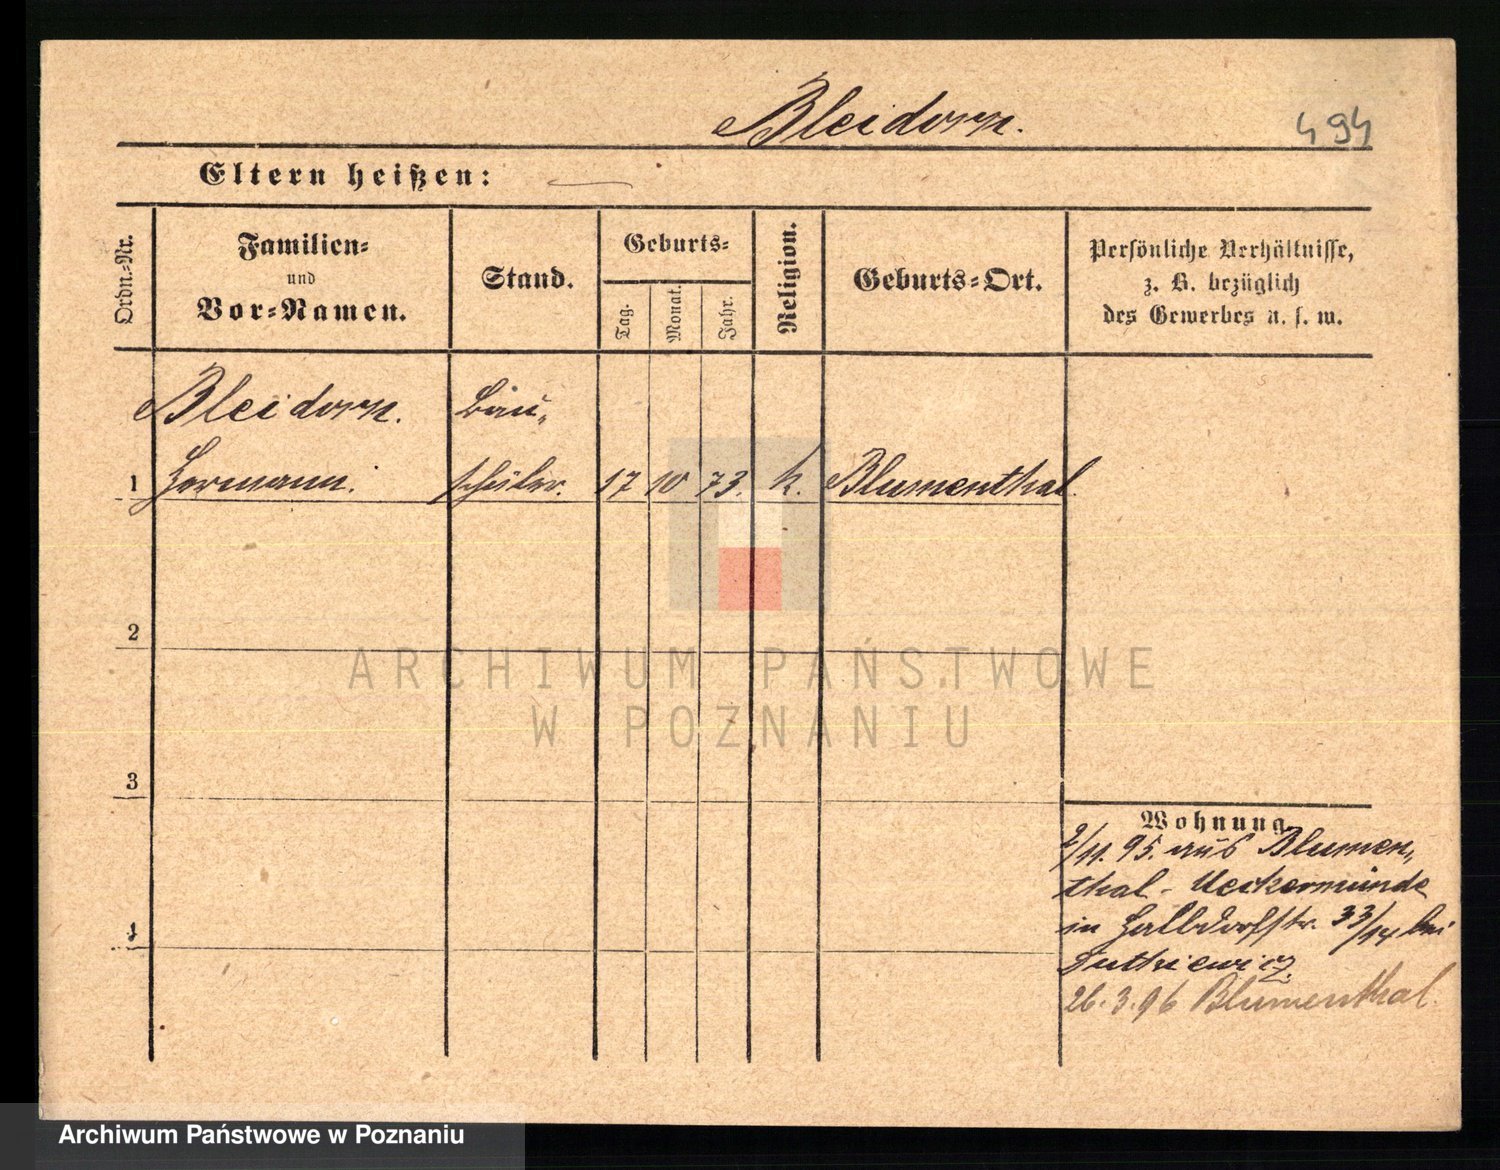 Bleidorn.
494
Eltern heißen:
Ordn.-Nr.
Familien-
und
Vor-Namen.
Stand.
Geburts-
Tag.
Monat.
Jahr.
Religion.
Geburts-Ort.
Persönliche Verhältnisse,
z. B. bezüglich
des Gewerbes u. s. w.
Bleidorn. Bau-
1 Hermann. schüler. 17 10 73. k. Blumenthal.
2
3
4
Wohnung
2/11. 95. aus Blumen-
thal - Ueckermünde
in Halbdorfstr. 33/14 bei
Dutkiewicz.
26.3.96 Blumenthal.
ARCHIWUM PAŃSTWOWE
W POZNANIU
Archiwum Państwowe w Poznaniu